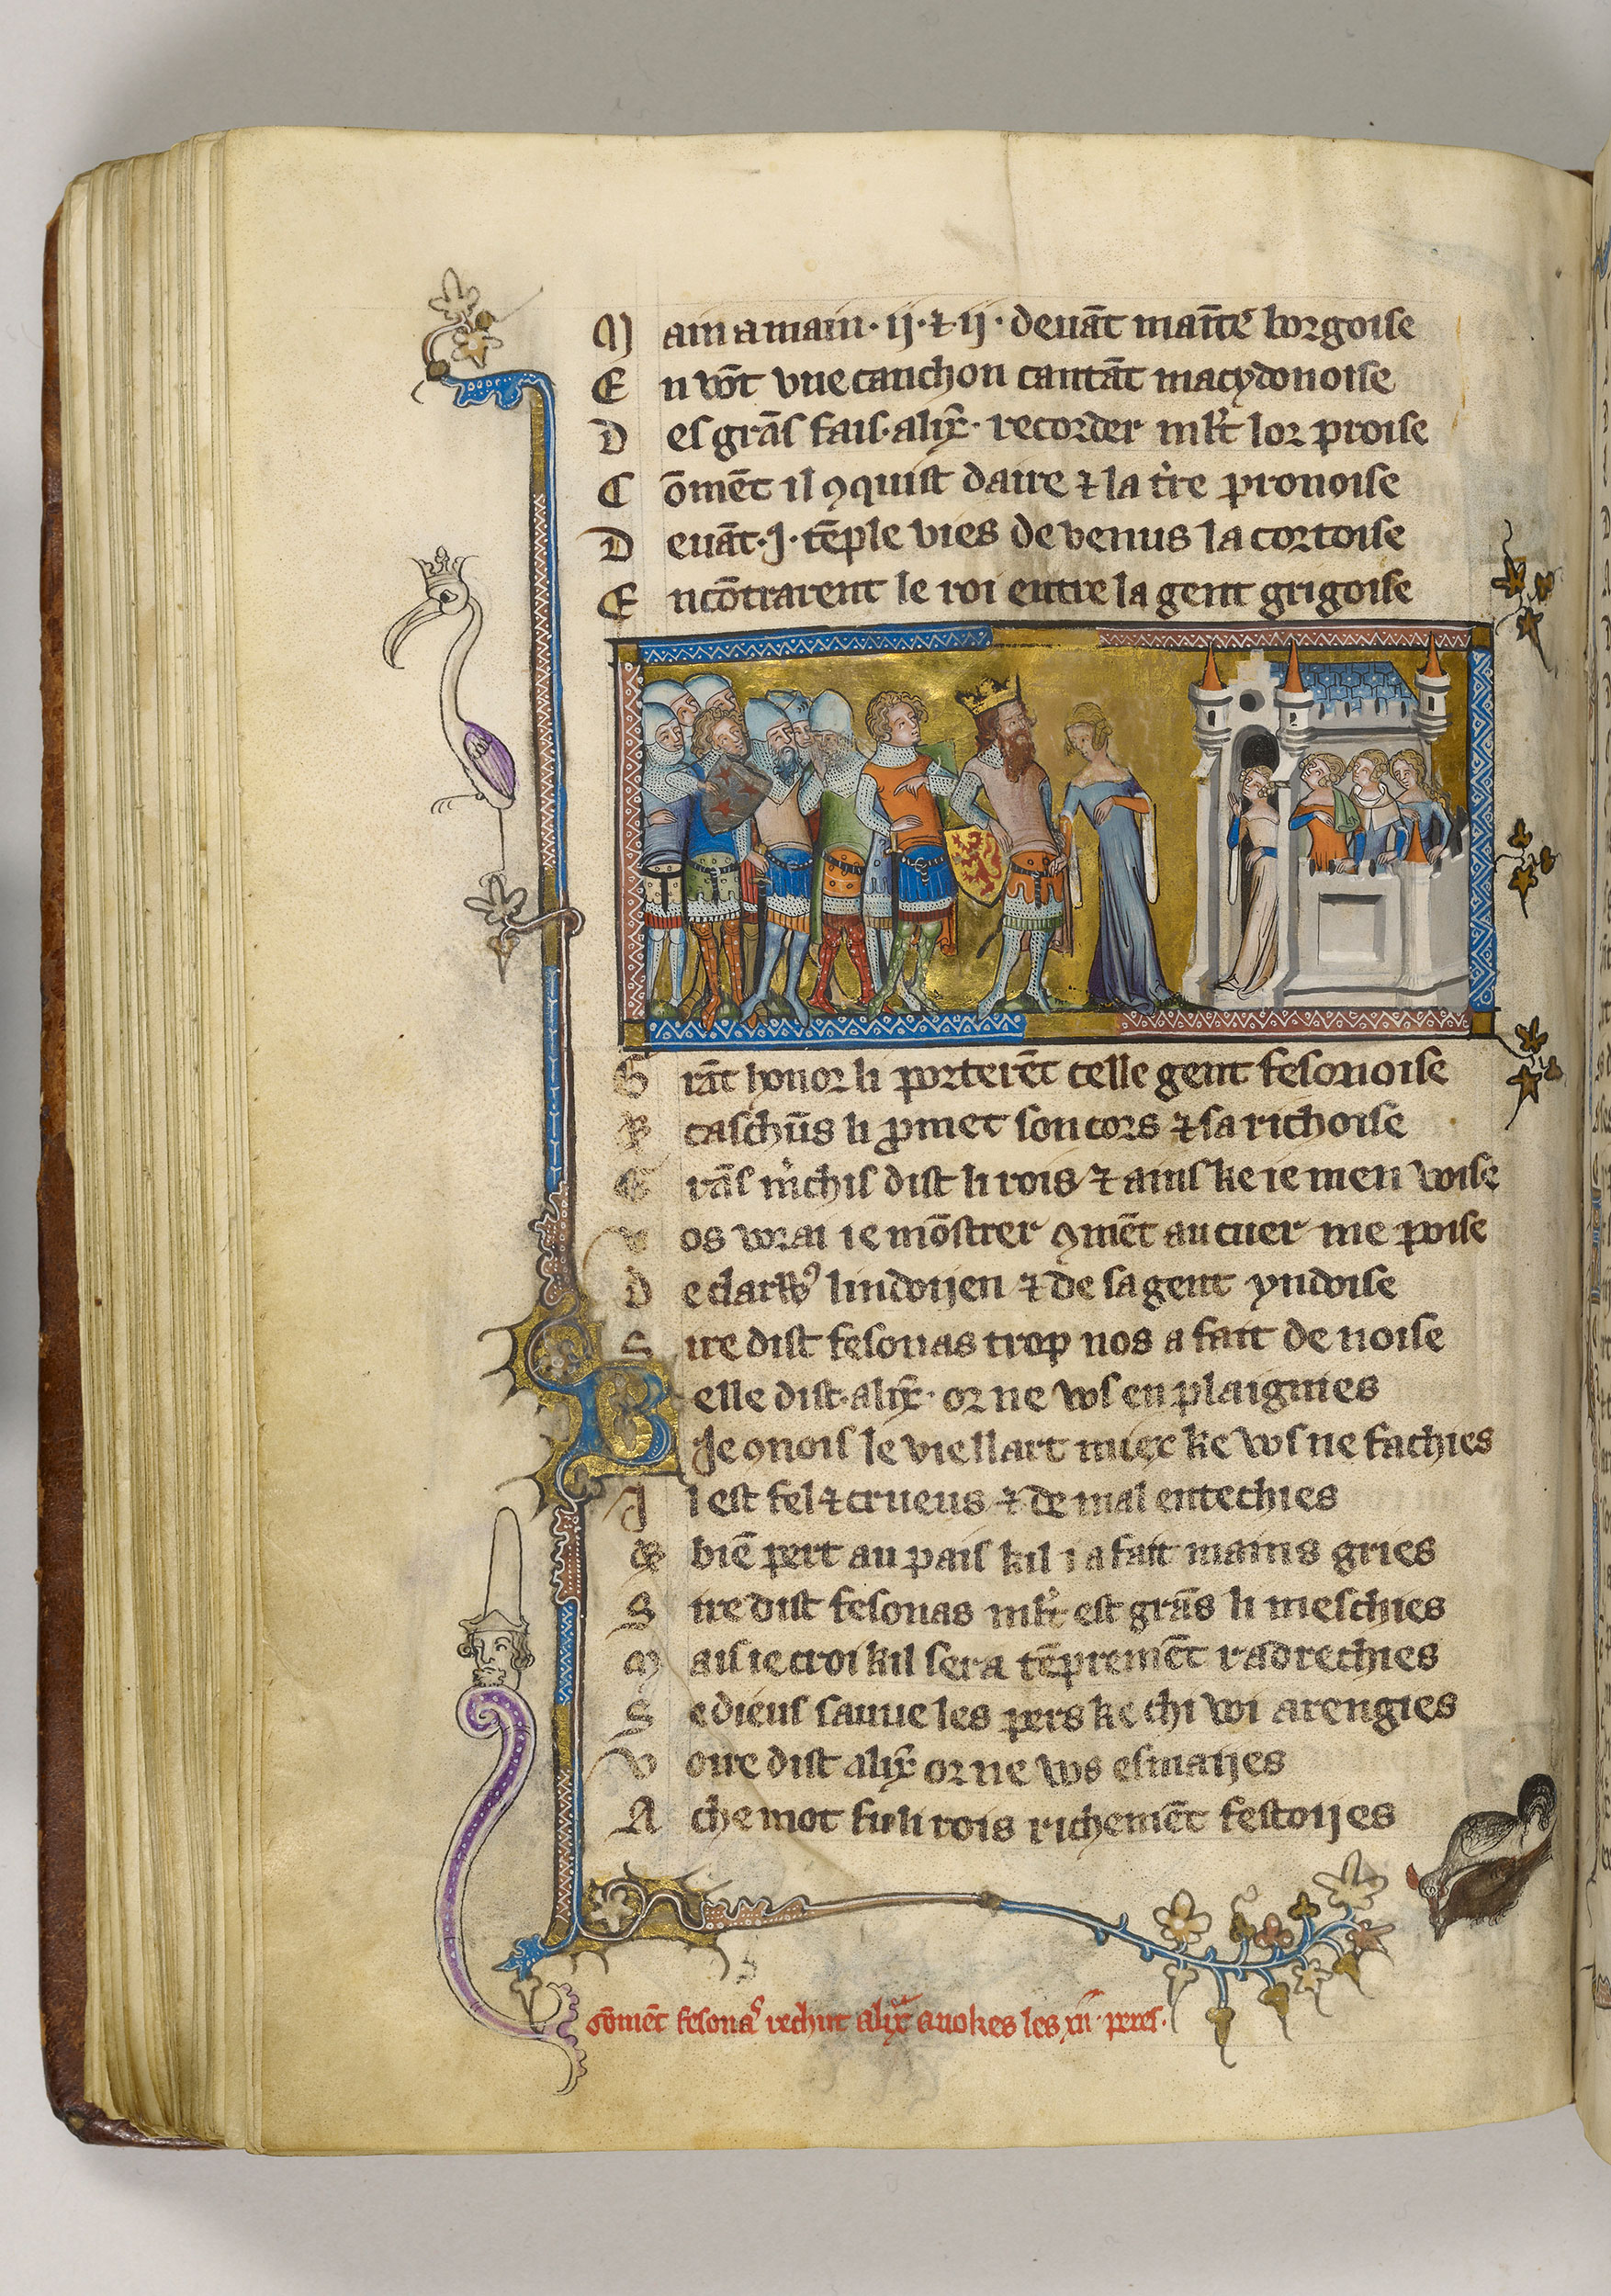 M ain a main · ij · ⁊ · ij · deuāt mainte borgoise
E n vōt vne canchon cantāt macydonoise
D es grās fais · alix̄ · recorder mlt̄ lor proise
C ōmēt il ꝯquist daire ⁊ la t̄re pronoise
D euāt · j · tēple vies de venus la cortoise
E ncōtrarent le roi entre la gent grigoise
G rāt honor li porterēt celle gent fesonoise
caschūs li ꝓmet son cors ⁊ sa richoise
G rās m̄chis dist li rois ⁊ ains ke ie men voise
V os vorai ie mōstrer ꝯmēt au cuer me poise
D e clarꝰ lindoijen ⁊ de sa gent yndoise
S ire dist fesonas trop nos a fait de noise
B elle dist · alix̄ · or ne vos en plaignies
Je ꝯnois le viellart miex ke vos ne fachies
J l est fel ⁊ crueus ⁊ de mal entechies
⁊ biē pert au pais kil i a fait mains gries
S ire dist fesonas mlt̄ est grās li meschies
M ais ie croi kil sera tēpremēt radrechies
S e dieus sauue les pers ke chi voi arengies
V oire dist alix̄ or ne vos esmaijes
A che mot fu li rois richemēt festoijes
Cōmēt fesonaˢ rechut alix̄ auokes les xij · peres ·